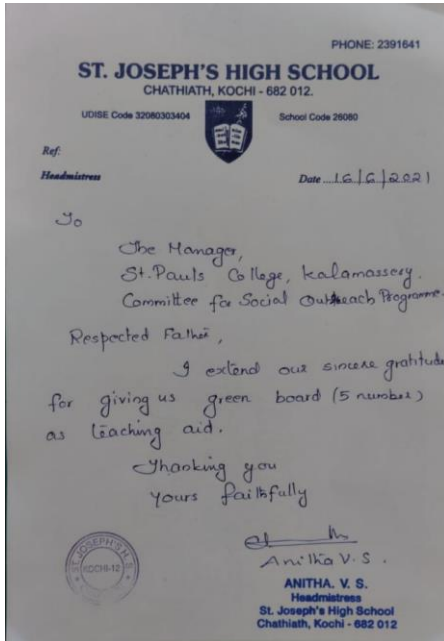 PHONE: 2391641
ST. JOSEPH'S HIGH SCHOOL
CHATHIATH, KOCHI - 682 012.
UDISE Code 32080303404
School Code 26080
Ref:
Headmistress
Date 16/6/2021
To
The Manager,
St. Pauls College, Kalamassery.
Committee for Social Outreach Programme.
Respected Father,
I extend our sincere gratitude
for giving us green board (5 number)
as teaching aid.
Thanking you
Yours faithfully
ST. JOSEPH'S H.S.
KOCHI-12
Anitha V. S.
ANITHA. V. S.
Headmistress
St. Joseph's High School
Chathiath, Kochi - 682 012